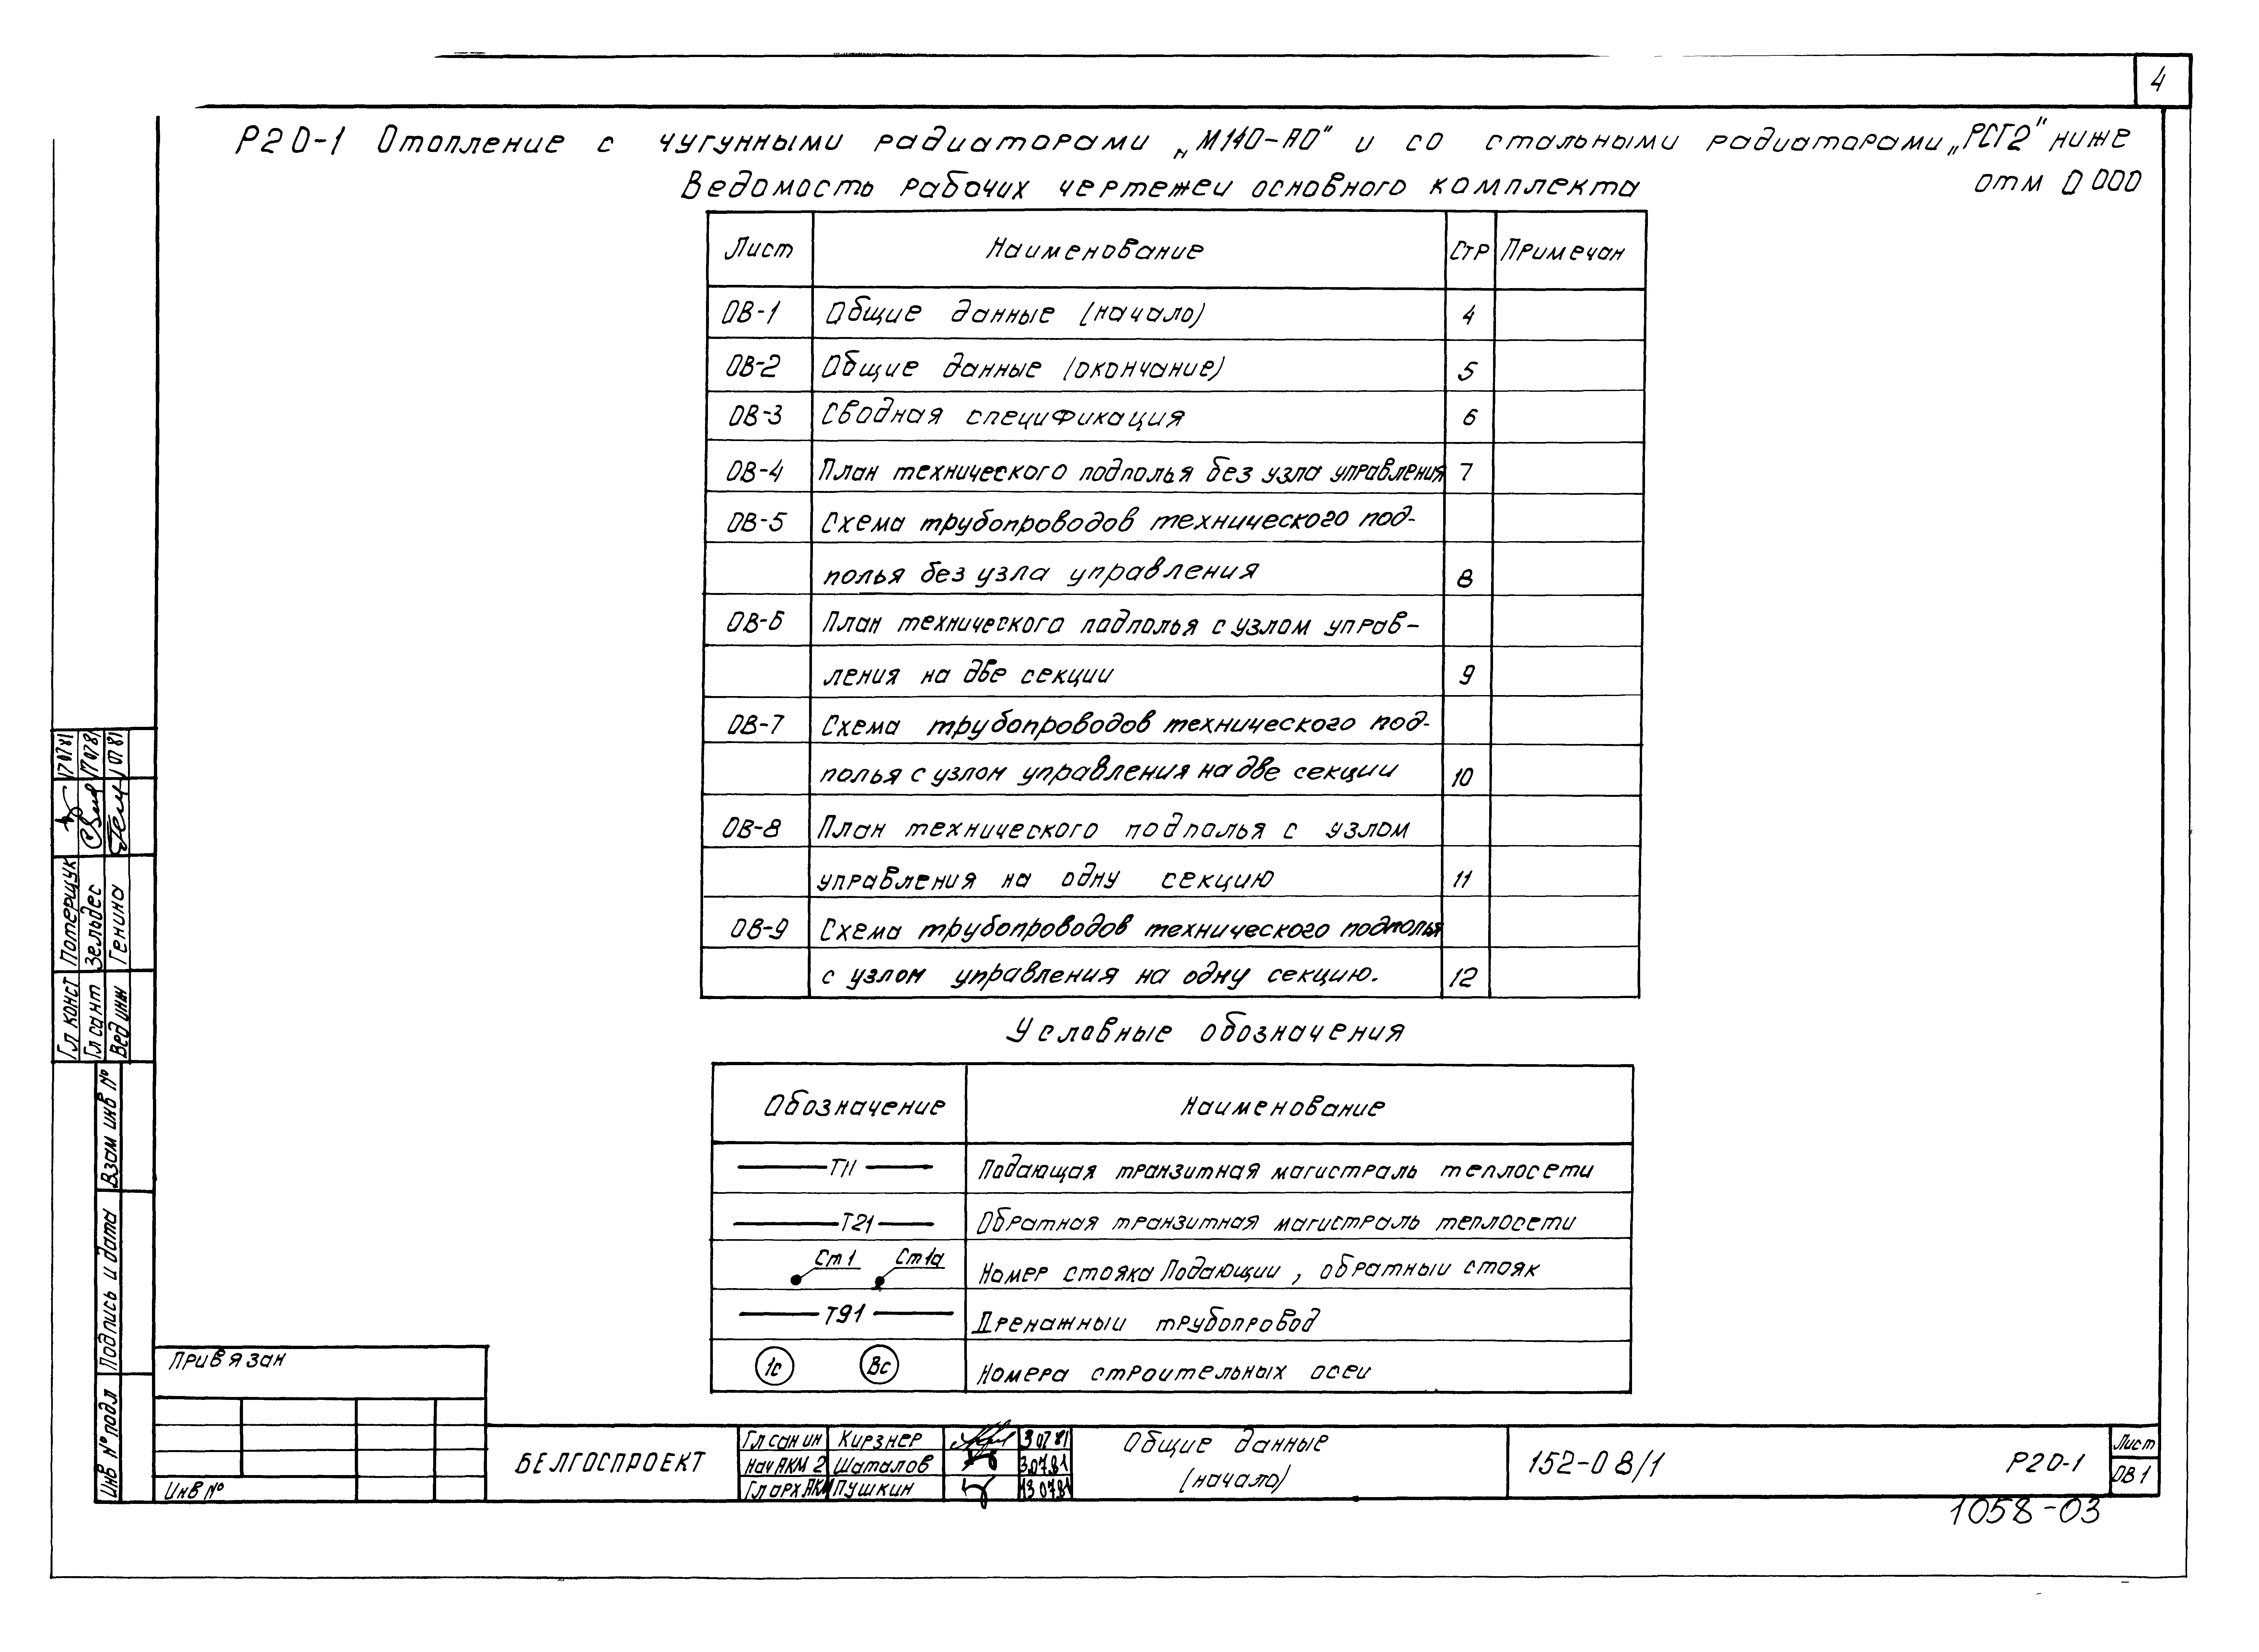 4
Р20-1 Отопление с чугунными радиаторами „М140-АО" и со стальными радиаторами „РСГ2" ниже
отм 0 000
Ведомость рабочих чертежеи основного комплекта
Лист Наименование Стр Примечан
ОВ-1 Общие данные (начало) 4
ОВ-2 Общие данные (окончание) 5
ОВ-3 Сводная спецификация 6
ОВ-4 План технического подполья без узла управления 7
ОВ-5 Схема трубопроводов технического под-
полья без узла управления 8
ОВ-6 План технического подполья с узлом управ-
ления на две секции 9
ОВ-7 Схема трубопроводов технического под-
полья с узлом управления на две секции 10
ОВ-8 План технического подполья с узлом
управления на одну секцию 11
ОВ-9 Схема трубопроводов технического подполья
с узлом управления на одну секцию. 12
Условные обозначения
Обозначение Наименование
Т11 Подающая транзитная магистраль теплосети
Т21 Обратная транзитная магистраль теплосети
Ст1 Ст1а Номер стояка Подающии, обратныи стояк
Т91 Дренажныи трубопровод
1с Вс Номера строительных осеи
Гл конст Потерщук 17 07 81
Гл сант Зельдес 17 07 81
Вед инж Генина 07 81
Взам инв №
Подпись и дата
Инв № подл
Привязан
Инв №
БЕЛГОСПРОЕКТ
Гл сан ин Кирзнер 3 07 81
Нач АКМ 2 Шаталов 3.07.81
Гл арх АКМ Пушкин 13 07 81
Общие данные
(начало)
152-08/1
Р20-1
Лист
ОВ1
1058-03